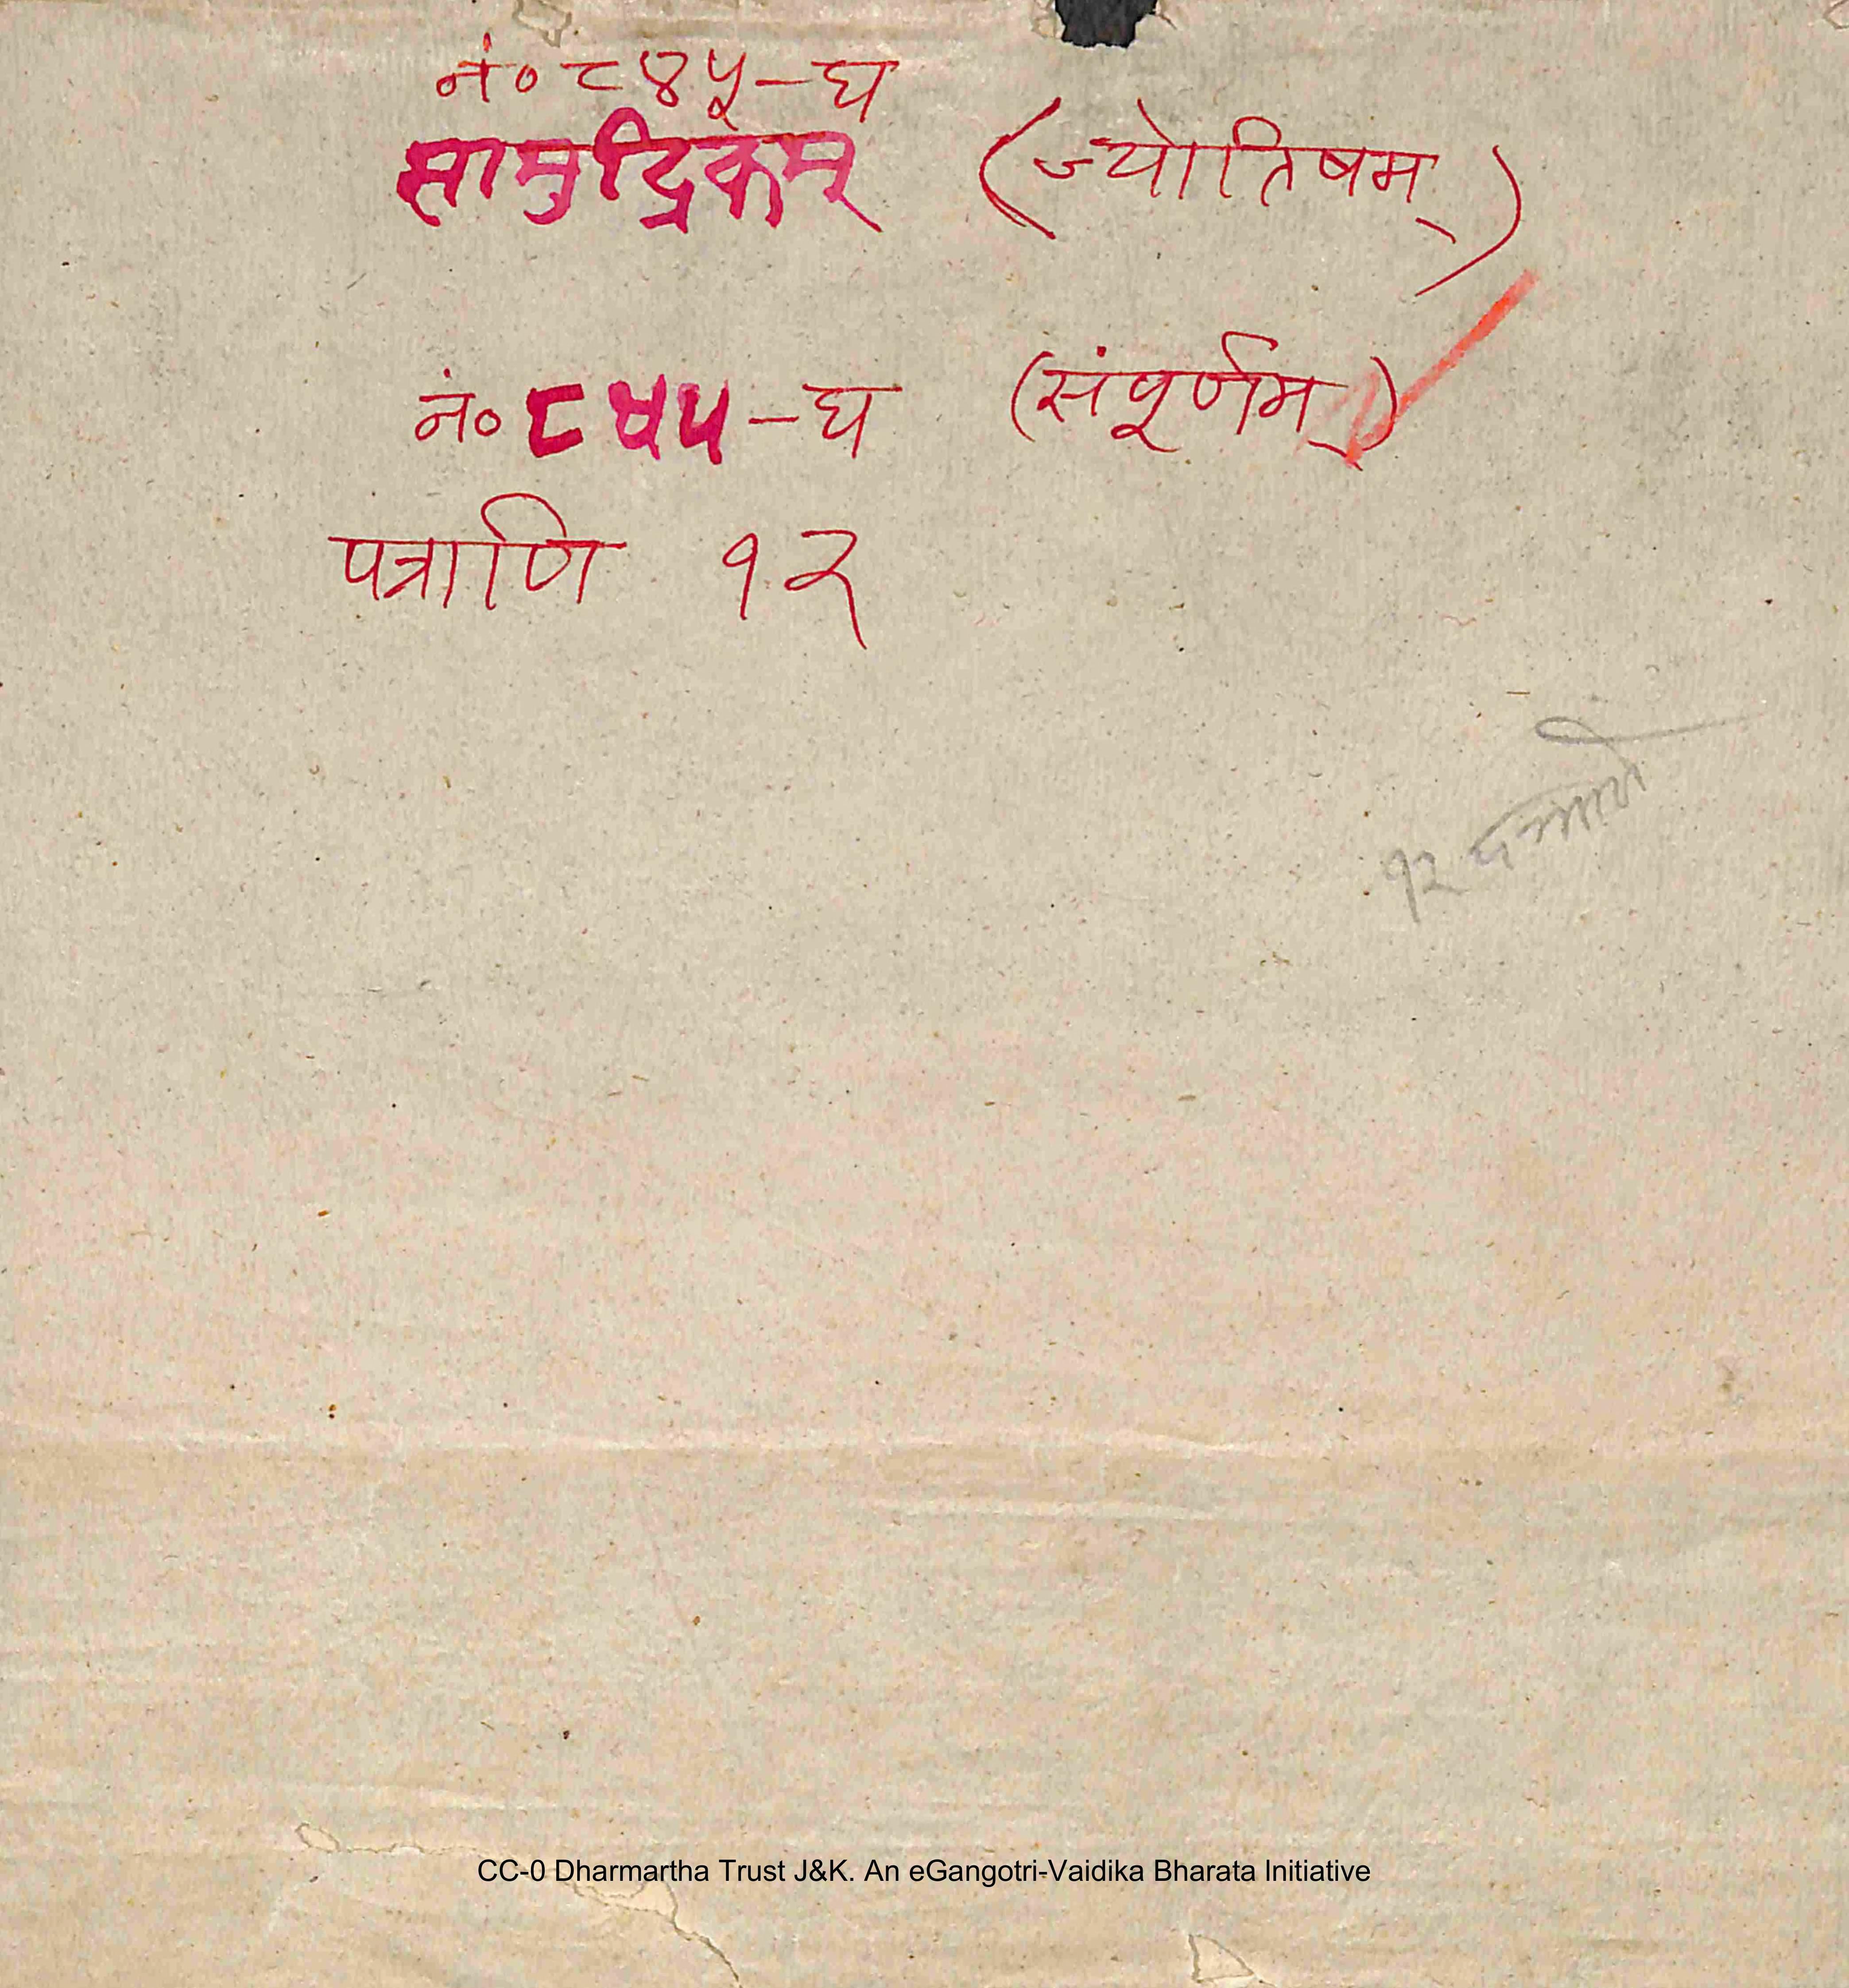 नं० ८४५-घ
सामुद्रिकम् (ज्योतिषम्)
नं० ८५५-घ (संपूर्णम्)
पत्राणि १२
१२
CC-0 Dharmartha Trust J&K. An eGangotri-Vaidika Bharata Initiative